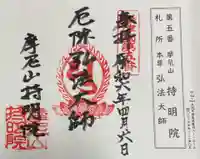 第五番 摩尼山 持明院
札所 本尊 弘法大師
奉拝 昭和六年四月六日
厄除弘法大師
摩尼山持明院